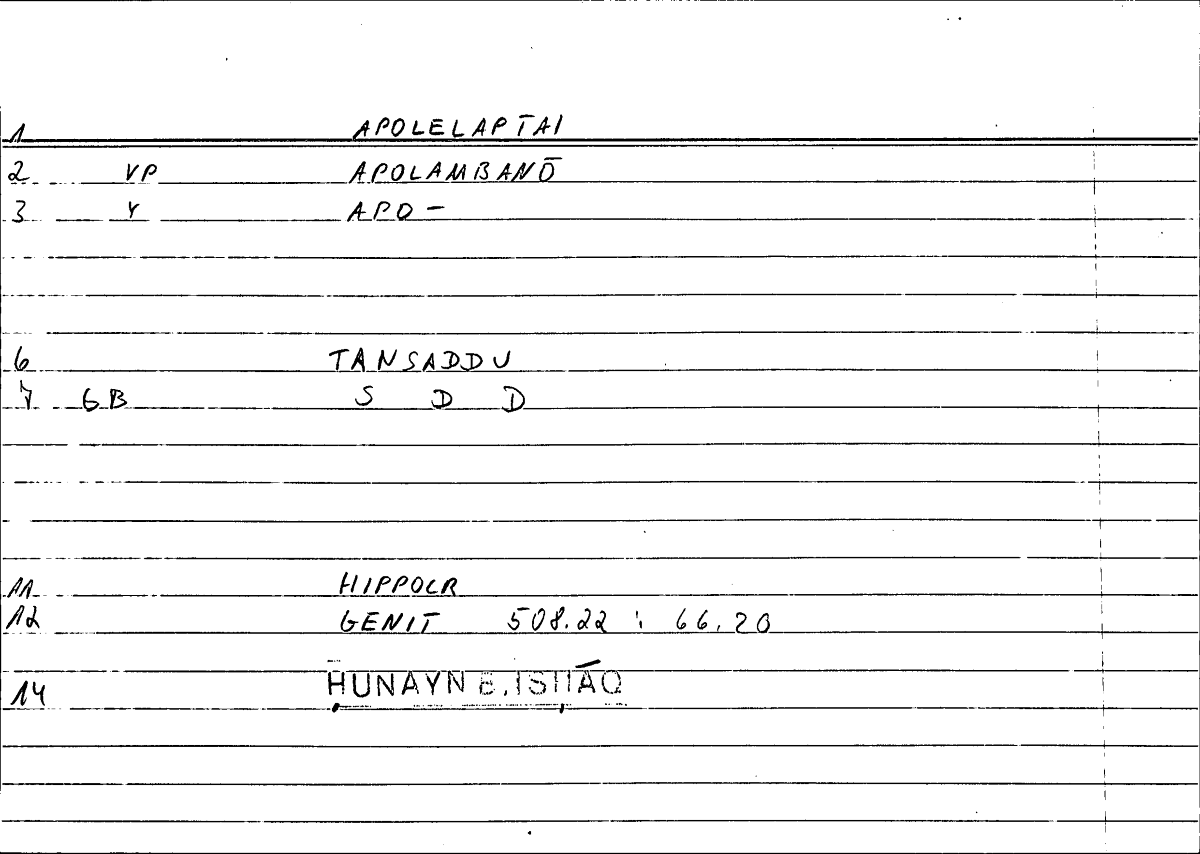 1 APOLELAPTAI
2 VP APOLAMBANŌ
3 V APO-
6 TANSADDU
7 GB S D D
11 HIPPOCR
12 GENIT 508.22 : 66.20
14 ḤUNAYN B. ISḤĀQ